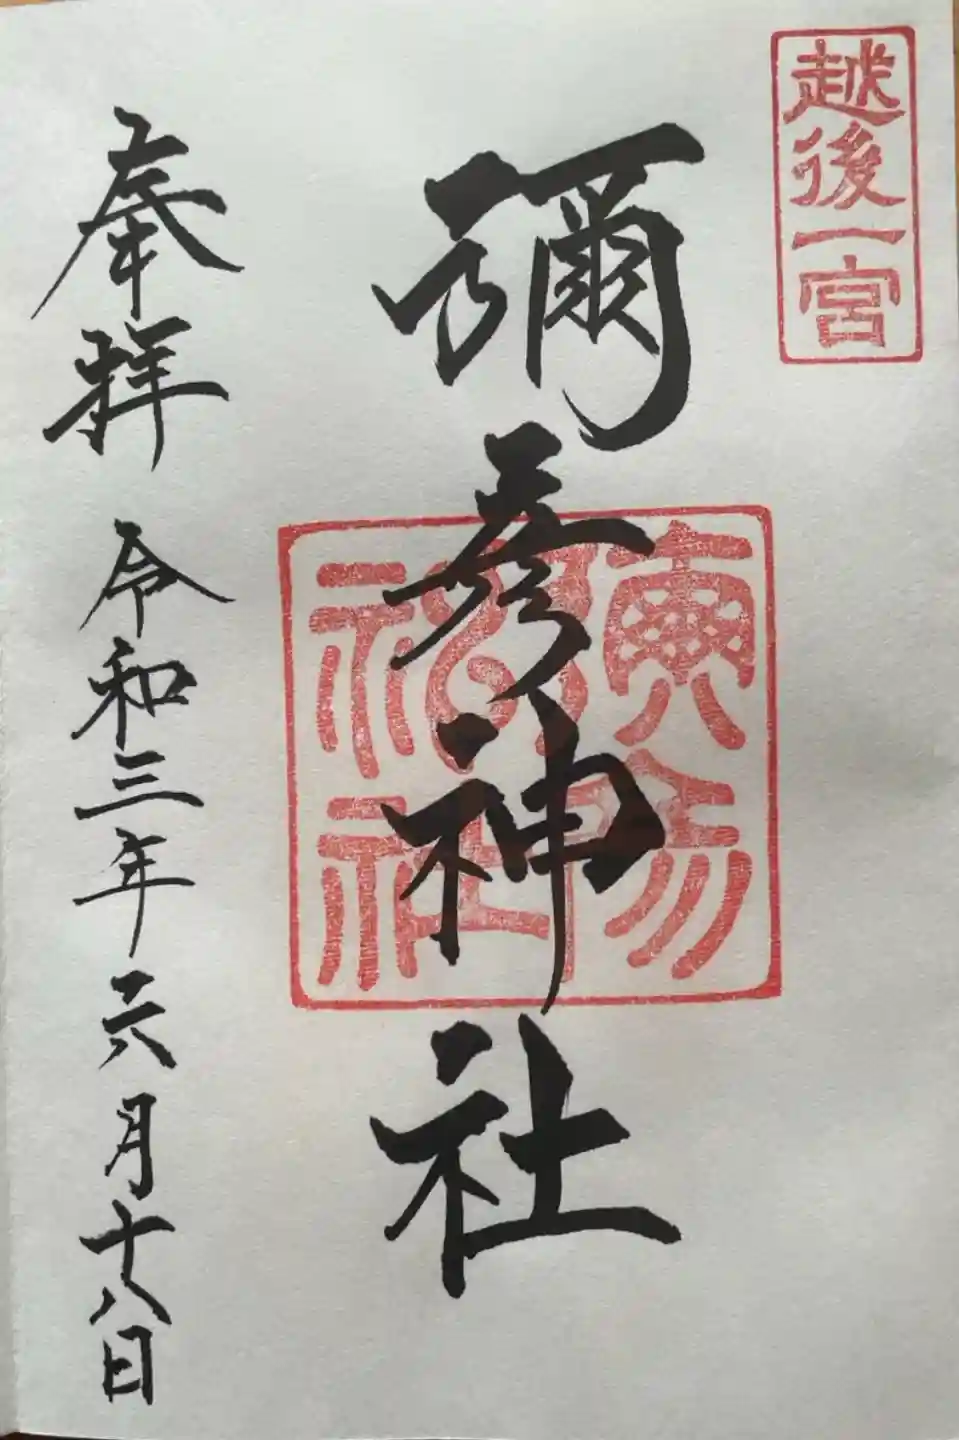 越後一宮
彌彦神社
奉拝
令和三年六月十八日